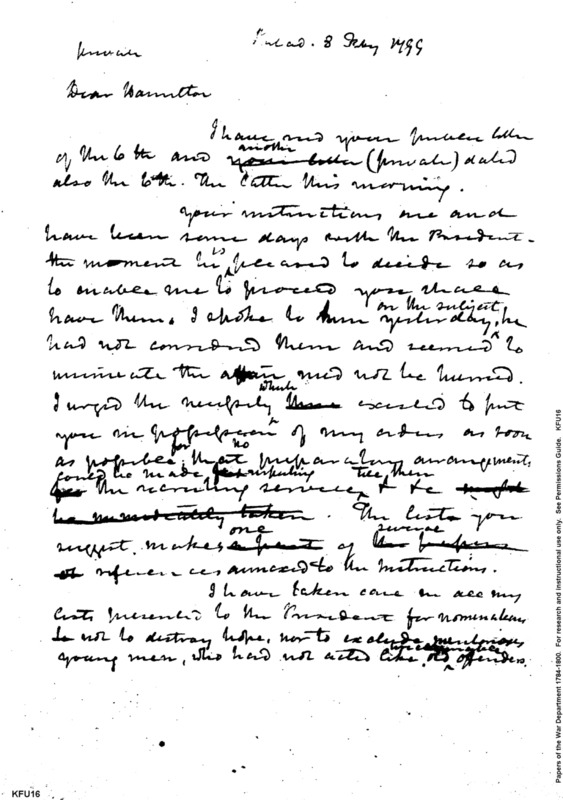 private
Philad. 8 Feby 1799
Dear Hamilton
I have recd your private letter
of the 6th and your letter another (private) dated
also the 6th. The latter this morning.
Your instructions are and
have been some days with the President.
the moment he is pleased to decide so as
to enable me to proceed you shall
have them. I spoke to him on the subject yesterday, he
had not considered them and seemed to
insinuate the affair need not be hurried.
I urged the necessity which existed to put
you in possession of my orders as soon
as possible; for no preparatory arrangements
could be made for the recruiting service till then &c
be immediately taken. The list you
suggest, makes one of several
references annexed to the Instructions.
I have taken care in all my
lists presented to the President for nominations
not to destroy hope, nor to exclude meritorious
young men, who had not acted like old offenders.
KFU16
Papers of the War Department 1784-1800. For research and instructional use only. See Permissions Guide. KFU16